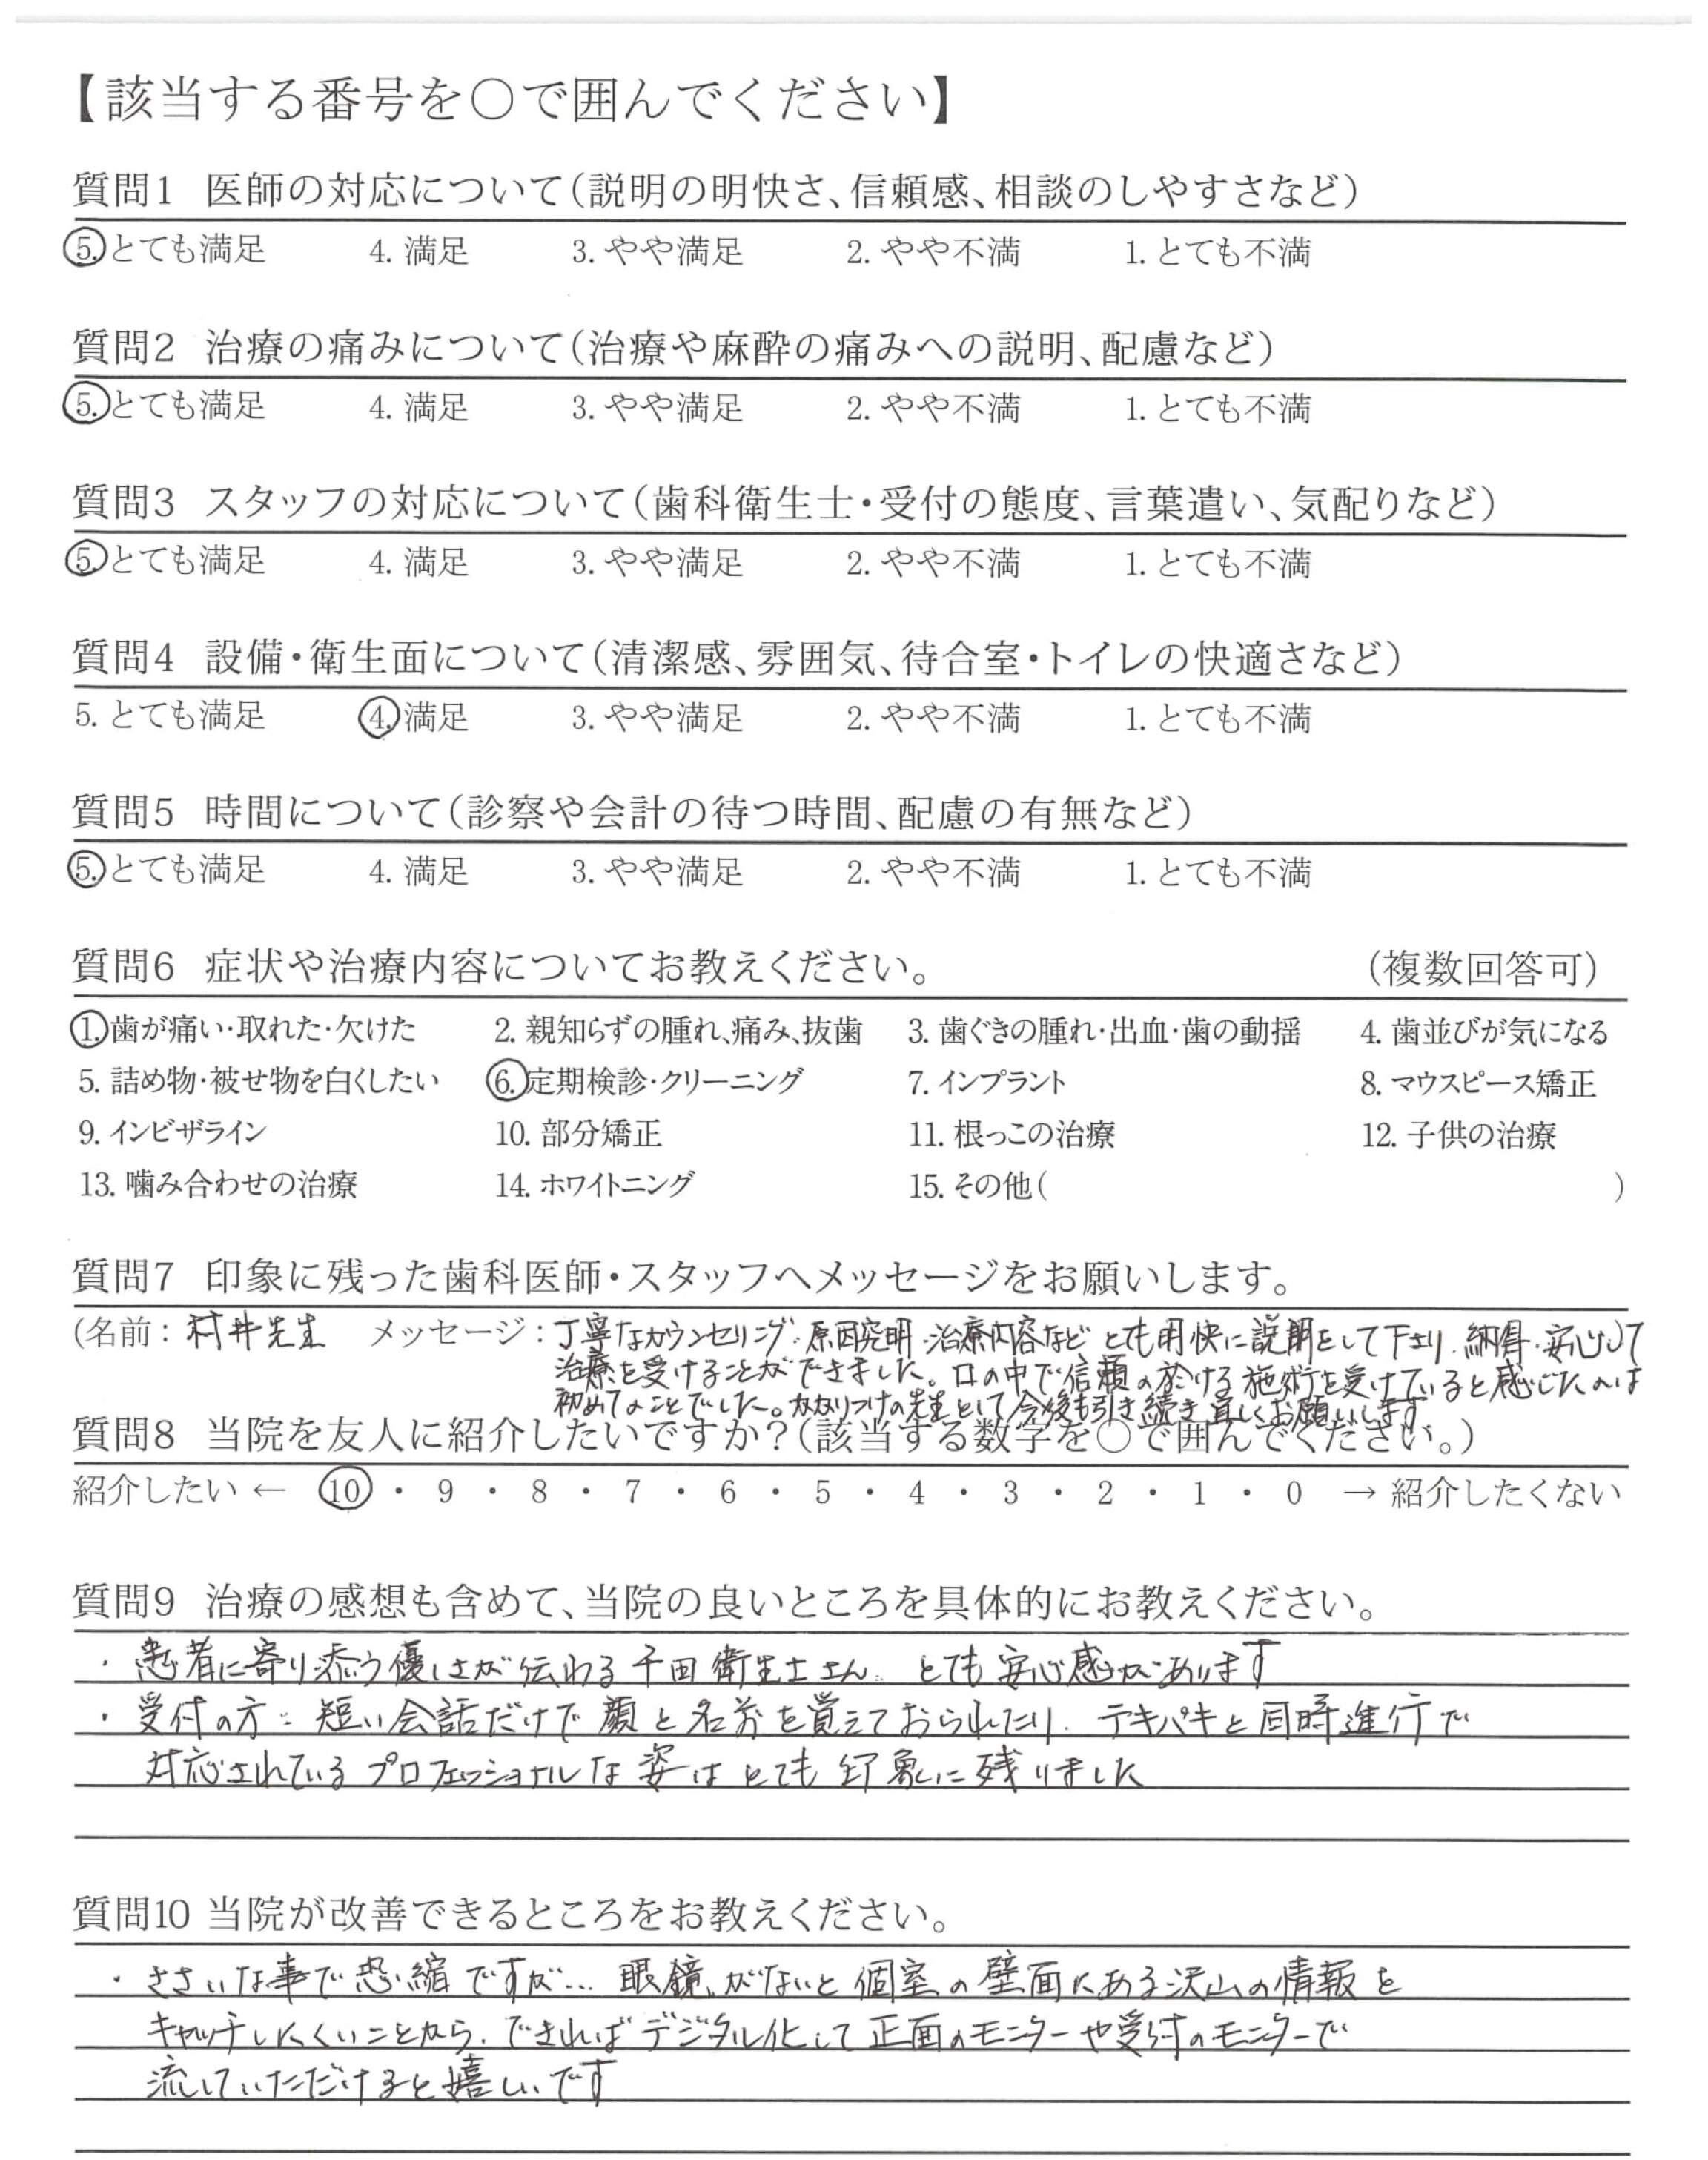 【該当する番号を○で囲んでください】
質問1 医師の対応について(説明の明快さ、信頼感、相談のしやすさなど)
5. とても満足 4. 満足 3. やや満足 2. やや不満 1. とても不満
質問2 治療の痛みについて(治療や麻酔の痛みへの説明、配慮など)
5. とても満足 4. 満足 3. やや満足 2. やや不満 1. とても不満
質問3 スタッフの対応について(歯科衛生士・受付の態度、言葉遣い、気配りなど)
5. とても満足 4. 満足 3. やや満足 2. やや不満 1. とても不満
質問4 設備・衛生面について(清潔感、雰囲気、待合室・トイレの快適さなど)
5. とても満足 4. 満足 3. やや満足 2. やや不満 1. とても不満
質問5 時間について(診察や会計の待つ時間、配慮の有無など)
5. とても満足 4. 満足 3. やや満足 2. やや不満 1. とても不満
質問6 症状や治療内容についてお教えください。 (複数回答可)
1. 歯が痛い・取れた・欠けた 2. 親知らずの腫れ、痛み、抜歯 3. 歯ぐきの腫れ・出血・歯の動揺 4. 歯並びが気になる
5. 詰め物・被せ物を白くしたい 6. 定期検診・クリーニング 7. インプラント 8. マウスピース矯正
9. インビザライン 10. 部分矯正 11. 根っこの治療 12. 子供の治療
13. 噛み合わせの治療 14. ホワイトニング 15. その他( )
質問7 印象に残った歯科医師・スタッフへメッセージをお願いします。
(名前: 村井先生 メッセージ: 丁寧なカウンセリング・原因究明・治療内容など とても明快に説明をして下さり、納得・安心して
治療を受けることができました。口の中で信頼の於ける施術を受けていると感じたのは
初めてのことでした。かかりつけの先生として今後も引き続き宜しくお願いします
質問8 当院を友人に紹介したいですか?(該当する数字を○で囲んでください。)
紹介したい ← 10 ・ 9 ・ 8 ・ 7 ・ 6 ・ 5 ・ 4 ・ 3 ・ 2 ・ 1 ・ 0 → 紹介したくない
質問9 治療の感想も含めて、当院の良いところを具体的にお教えください。
・患者に寄り添う優しさが伝わる千田衛生士さん。とても安心感があります
・受付の方: 短い会話だけで顔と名前を覚えておられたり、テキパキと同時進行で
対応されているプロフェッショナルな姿はとても印象に残りました
質問10 当院が改善できるところをお教えください。
・ささいな事で恐縮ですが… 眼鏡がないと個室の壁面にある沢山の情報を
キャッチしにくいことから、できればデジタル化して正面のモニターや受付のモニターで
流していただけると嬉しいです